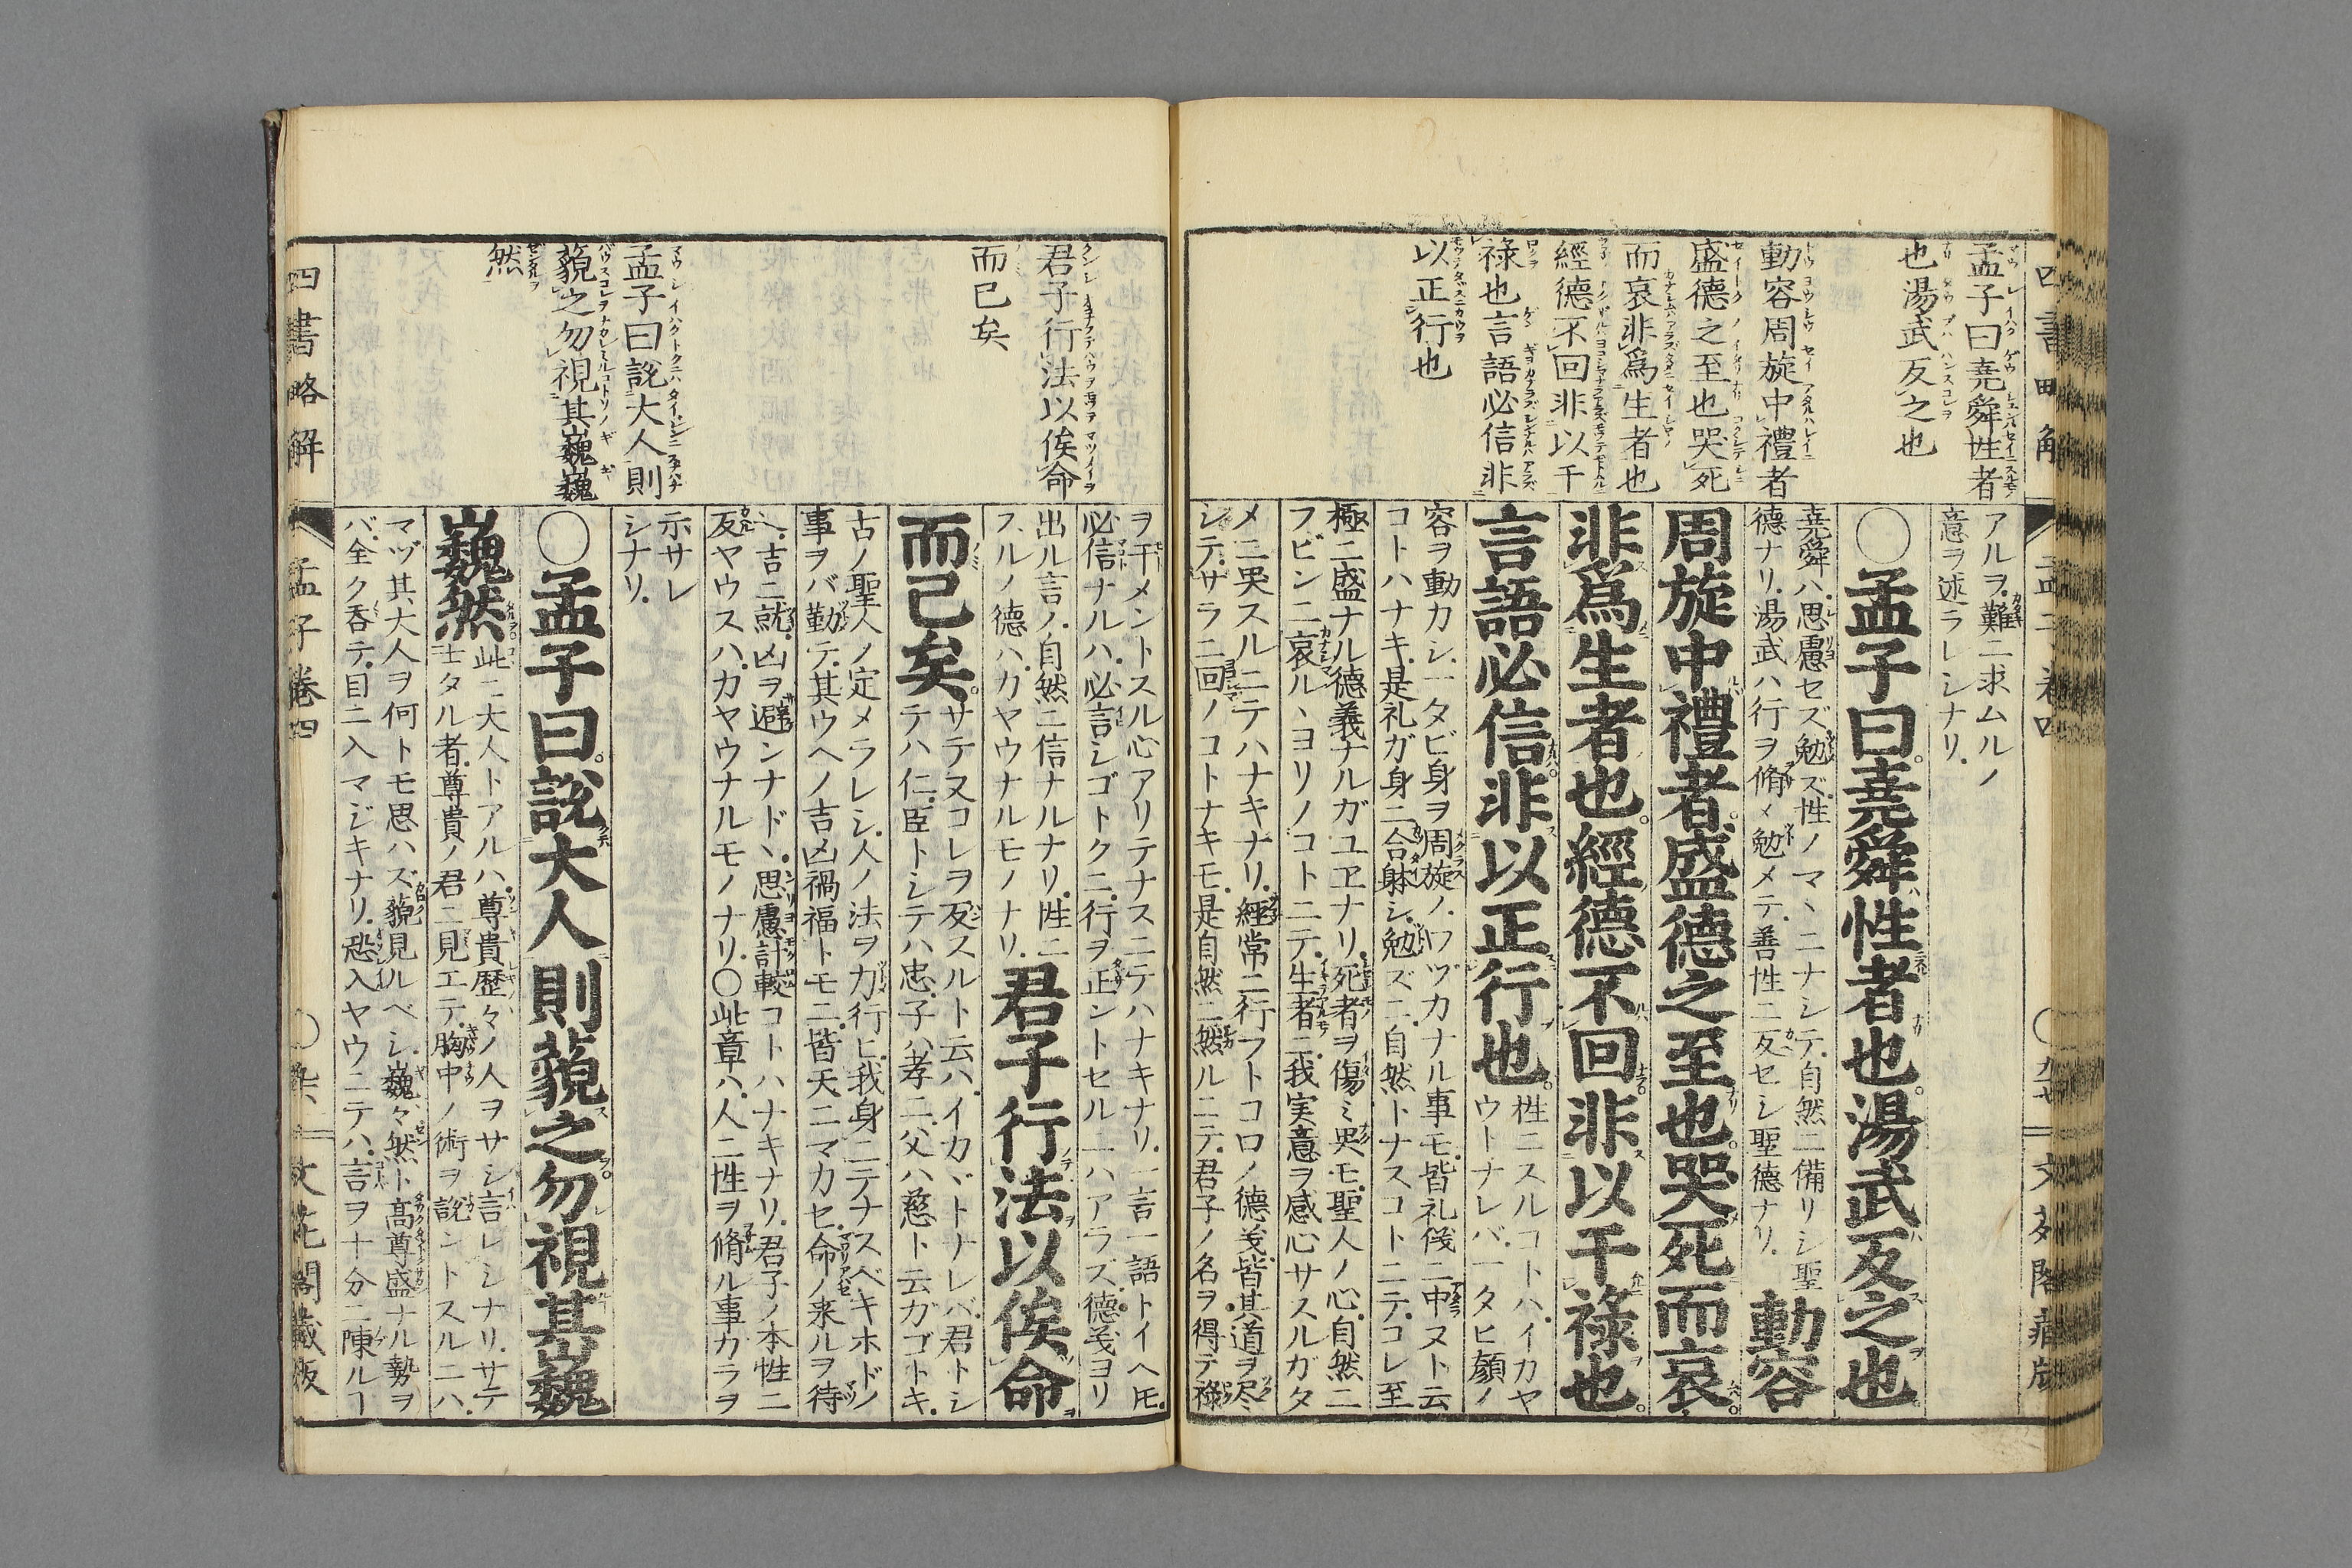 四書略解
孟子卷四
孟子曰堯舜性者
也湯武反之也
動容周旋中禮者
盛德之至也哭死
而哀非爲生者也
經德不回非以干
祿也言語必信非
以正行也
アルヲ難ニ求ムルノ
意ヲ述ラレシナリ
〇孟子曰堯舜性者也湯武反之也
堯舜ハ思慮セズ勉ズ性ノマヽニナシテ自然ニ備リシ聖
德ナリ湯武ハ行ヲ脩メ勉メテ善性ニ反セシ聖德ナリ
動容
周旋中禮者盛德之至也哭死而哀
非爲生者也經德不回非以干祿也
言語必信非以正行也
性ニスルコトハイカヤ
ウトナレバ一タヒ顔ノ
容ヲ動カシ一タビ身ヲ周旋ノワヅカナル事モ皆礼儀ニ中ヌト云
コトハナキ是礼ガ身ニ合躰シ勉ズニ自然トナスコトニテコレ至
極ニ盛ナル德義ナルガユヱナリ死者ヲ傷ミ哭モ聖人ノ心自然ニ
フビンニ哀ルヽヨリノコトニテ生者ニ我実意ヲ感心サスルガタ
メニ哭スルニテハナキナリ經常ニ行フトコロノ德义皆其道ヲ尽
シテサラニ回ノコトナキモ是自然ニ然ルニテ君子ノ名ヲ得テ祿
君子行法以俟命
而已矣
孟子曰說大人則
藐之勿視其巍巍
然
ヲ干メントスル心アリテナスニテハナキナリ一言一語トイヘ𪜈
必信ナルハ必言シゴトクニ行ヲ正ントセルニハアラズ德义ヨリ
出ル言ノ自然ニ信ナルナリ性ニ
スルノ德ハカヤウナルモノナリ
君子行法以俟命
而已矣
サテ又コレヲ反スルト云ハイカヾトナレバ君トシ
テハ仁臣トシテハ忠子ハ孝ニ父ハ慈ト云ガゴトキ
古ノ聖人ノ定メラレシ人ノ法ヲ力行ヒ我身ニテナスベキホドノ
事ヲバ勤テ其ウヘノ吉凶禍福トモニ皆天ニマカセ命ノ来ルヲ待
ヘ吉ニ就凶ヲ避ンナドヽ思慮計較コトハナキナリ君子ノ本性ニ
反ヤウスハカヤウナルモノナリ〇此章ハ人ニ性ヲ脩ル事カラヲ
示サレ
シナリ
〇孟子曰說大人則藐之勿視其巍
巍然
此ニ大人トアルハ尊貴歴々ノ人ヲサシ言レシナリサテ
士タル者尊貴ノ君ニ見エテ胸中ノ術ヲ說ントスルニハ
マヅ其大人ヲ何トモ思ハズ藐見ルベシ巍々然ト髙尊盛ナル勢ヲ
バ全ク吞テ目ニ入マジキナリ恐入ヤウニテハ言ヲ十分ニ陳ルヿ
四書略解
孟子卷四
文花閣藏板